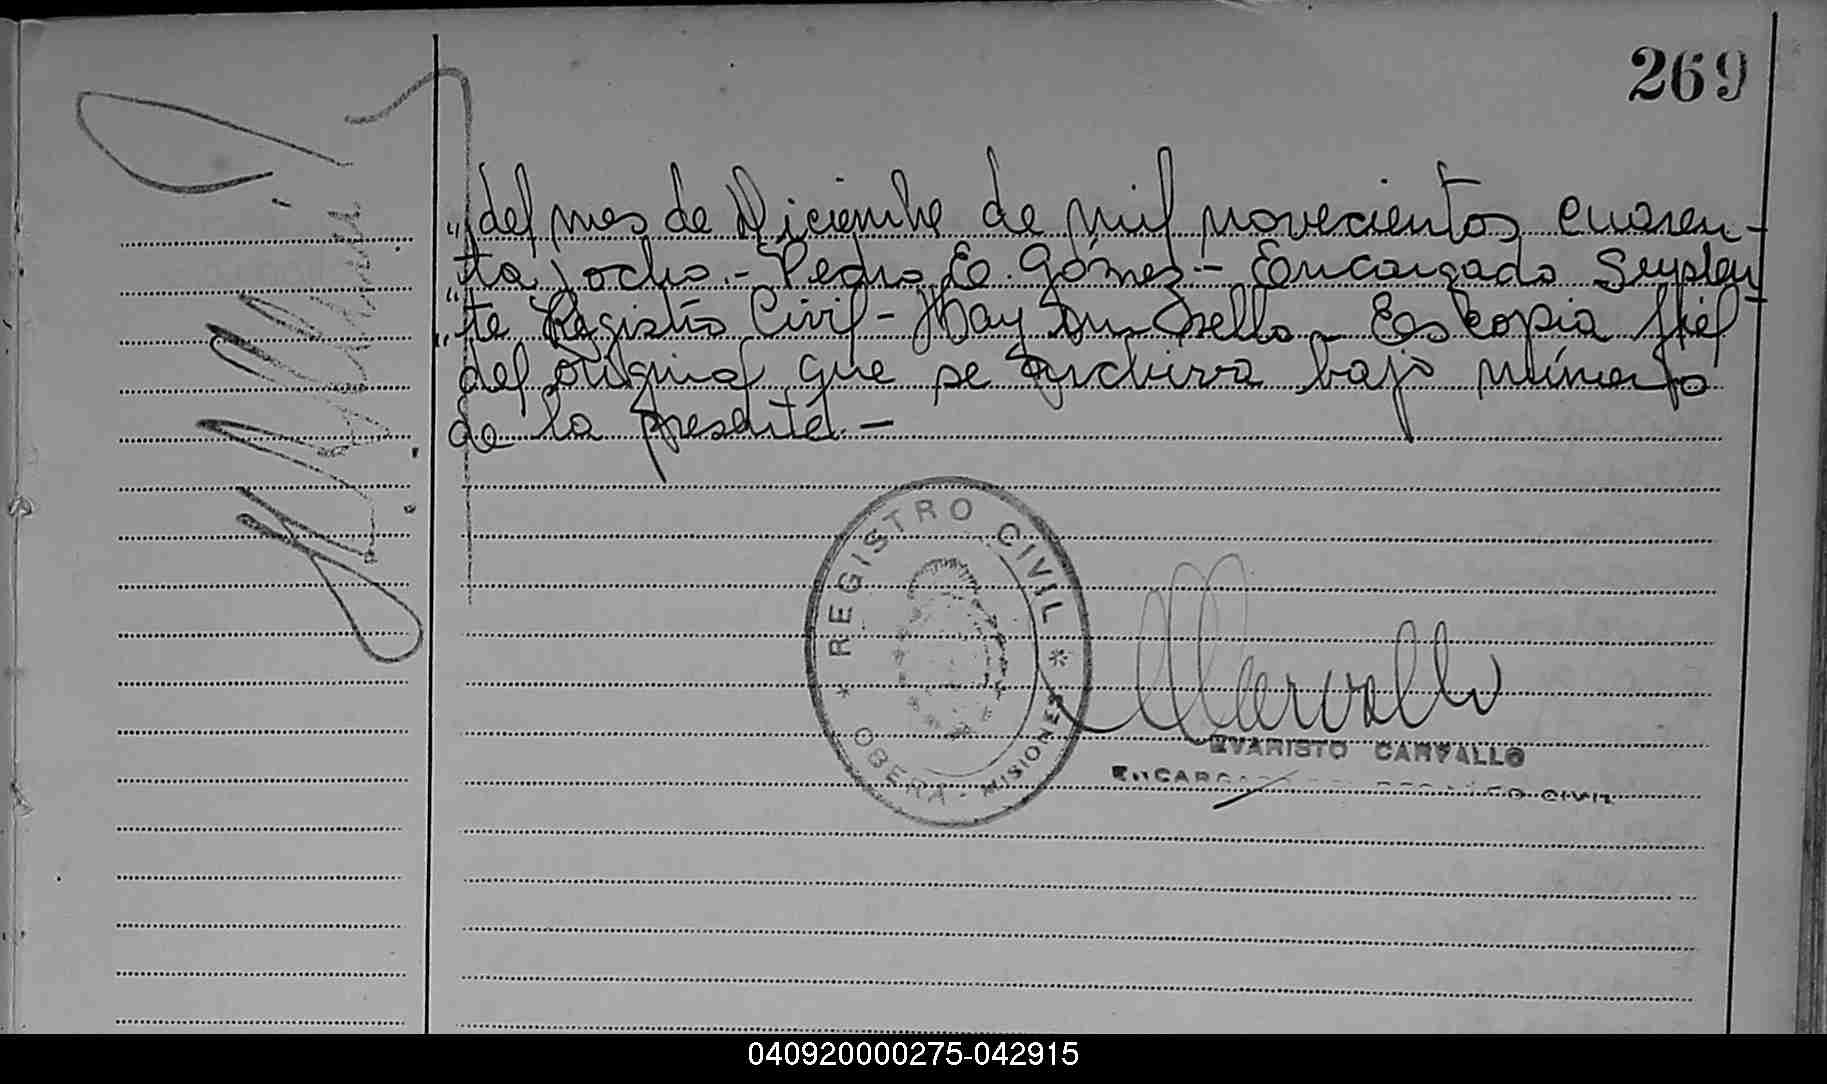 269
"del mes de Diciembre de mil novecientos cuaren-
"ta y ocho.- Pedro E. Gómez - Encargado Suplen
"te Registro Civil - Hay un sello - Es copia fiel
del original que se archiva bajo número
de la presente.-
REGISTRO CIVIL
* OBERA - MISIONES *
Carvallo
EVARISTO CARVALLO
ENCARGADO DEL REGISTRO CIVIL
040920000275-042915